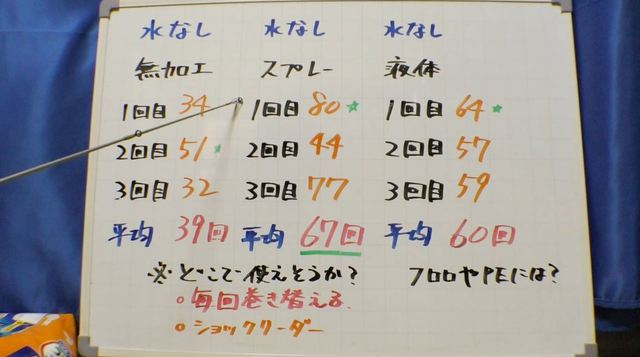 水なし 水なし 水なし
無加工 スプレー 液体
1回目 34 1回目 80☆ 1回目 64☆
2回目 51☆ 2回目 44 2回目 57
3回目 32 3回目 77 3回目 59
平均 39回 平均 67回 平均 60回
※どこで使えそうか? フロロやPEには?
○毎回巻き替える
○ショックリーダー